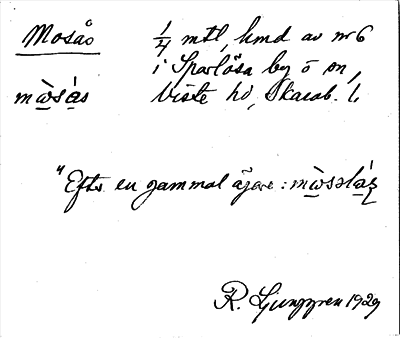 Mosås 1/4 mtl, hmd av nr 6
i Sparlösa by o sn,
mὼsás Viste hd, Skarab. l.
"Efter en gammal ägare: mὼsəláz
R. Ljunggren 1929